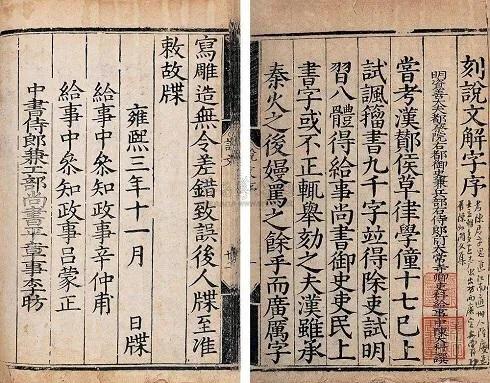 刻說文解字序
明資善大夫都察院右都御史兼兵部右侍郎前太常寺卿吏科給事中陳大科譔
嘗考漢酇侯草律學僮十七已上
試諷籀書九千字竝得除吏試明
習八體得給事尚書御史吏民上
書字或不正輒舉劾之夫漢雖承
秦火之後嫚罵之餘乎而廣厲字
寫雕造無令差錯致誤後人牒至准
敕故牒
雍熙三年十一月 日牒
給事中參知政事辛仲甫
給事中參知政事呂蒙正
中書侍郎兼工部尚書平章事李昉